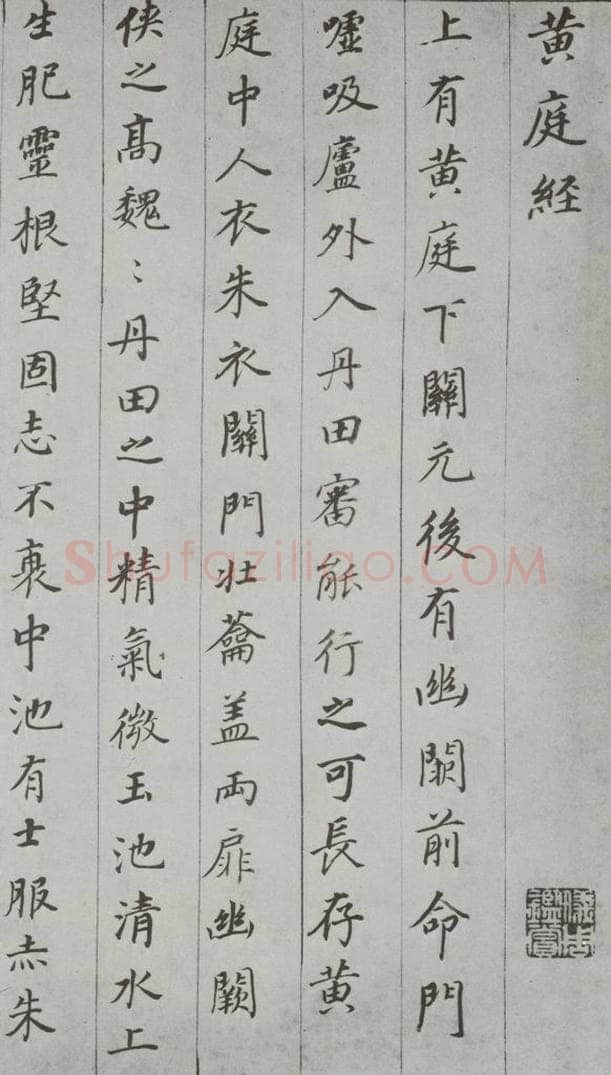 黄庭経
上有黄庭下關元後有幽闕前命門
嘘吸廬外入丹田審能行之可長存黄
庭中人衣朱衣關門壮蘥盖兩扉幽闕
侠之髙魏〻丹田之中精氣微玉池清水上
生肥靈根堅固志不衰中池有士服赤朱
Shufaziliao.COM